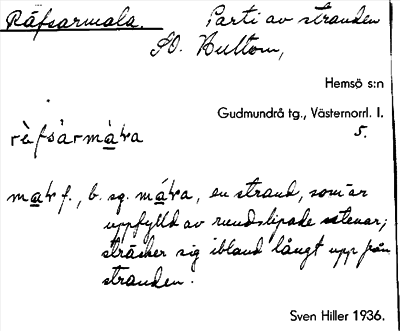 Räfsarmala. Parti av stranden
SO. Hultom,
Hemsö s:n
Gudmundrå tg., Västernorrl. l.
5.
rèfsàrmàɽa
maɽ f., b. sg. máɽa, en strand, som är
uppfylld av rundslipade stenar;
sträcker sig ibland långt upp från
stranden.
Sven Hiller 1936.